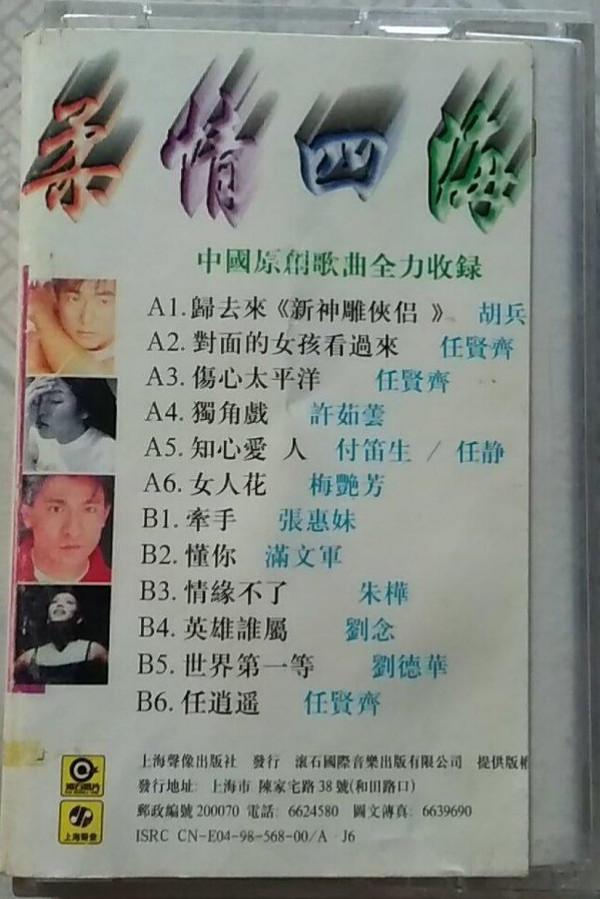 柔情四海
中國原創歌曲全力收録
A1. 歸去來《新神雕俠侣 》 胡兵
A2. 對面的女孩看過來 任賢齊
A3. 傷心太平洋 任賢齊
A4. 獨角戲 許茹蕓
A5. 知心愛 人 付笛生 / 任静
A6. 女人花 梅艷芳
B1. 牽手 張惠妹
B2. 懂你 滿文軍
B3. 情緣不了 朱樺
B4. 英雄誰屬 劉念
B5. 世界第一等 劉德華
B6. 任逍遥 任賢齊
上海聲像出版社 發行 滚石國際音樂出版有限公司 提供版權
發行地址: 上海市 陳家宅路38號(和田路口)
郵政編號200070 電話: 6624580 圖文傳真: 6639690
ISRC CN-E04-98-568-00/A J6
滚石唱片
上海聲像